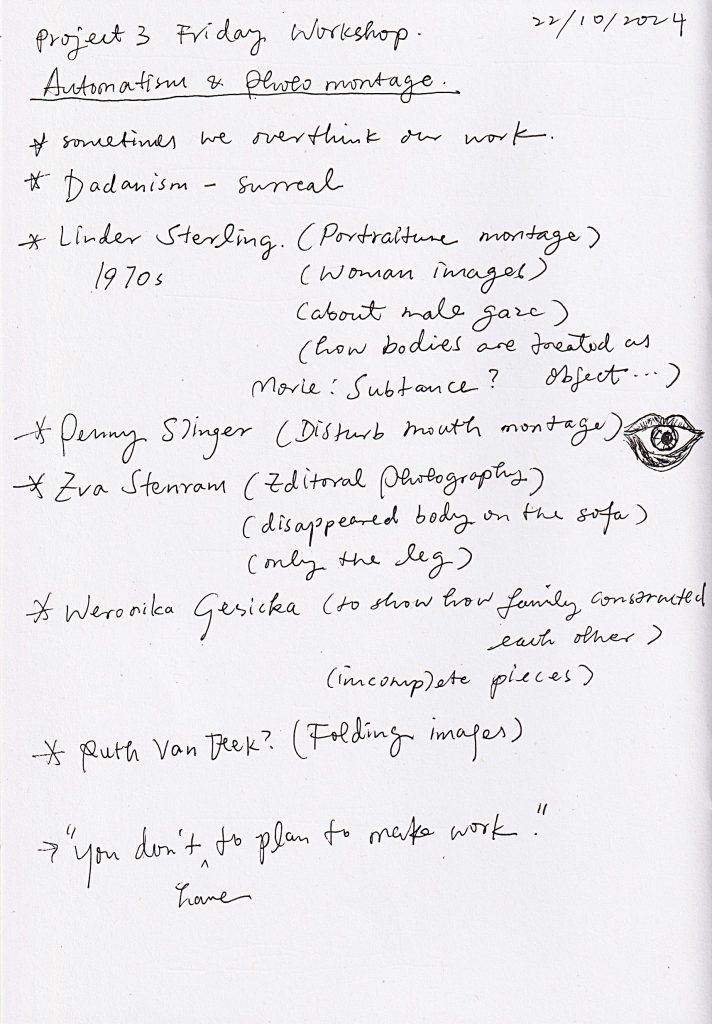 Project 3 Friday Workshop. 22/10/2024
Automatism & Photo montage.
* sometimes we overthink our work.
* Dadanism – surreal
* Linder Sterling. (Portraiture montage)
1970s (Woman images)
(about male gaze)
(how bodies are treated as
Movie: Subtance? object...)
* Penny Slinger (Disturb mouth montage)
* Eva Stenram (Editoral photography)
(disappeared body on the sofa)
(only the leg)
* Weronika Gesicka (to show how family constructed
each other)
(imcomplete pieces)
* Ruth Van Beek? (Folding images)
→ "You don't ^ to plan to make work."
have